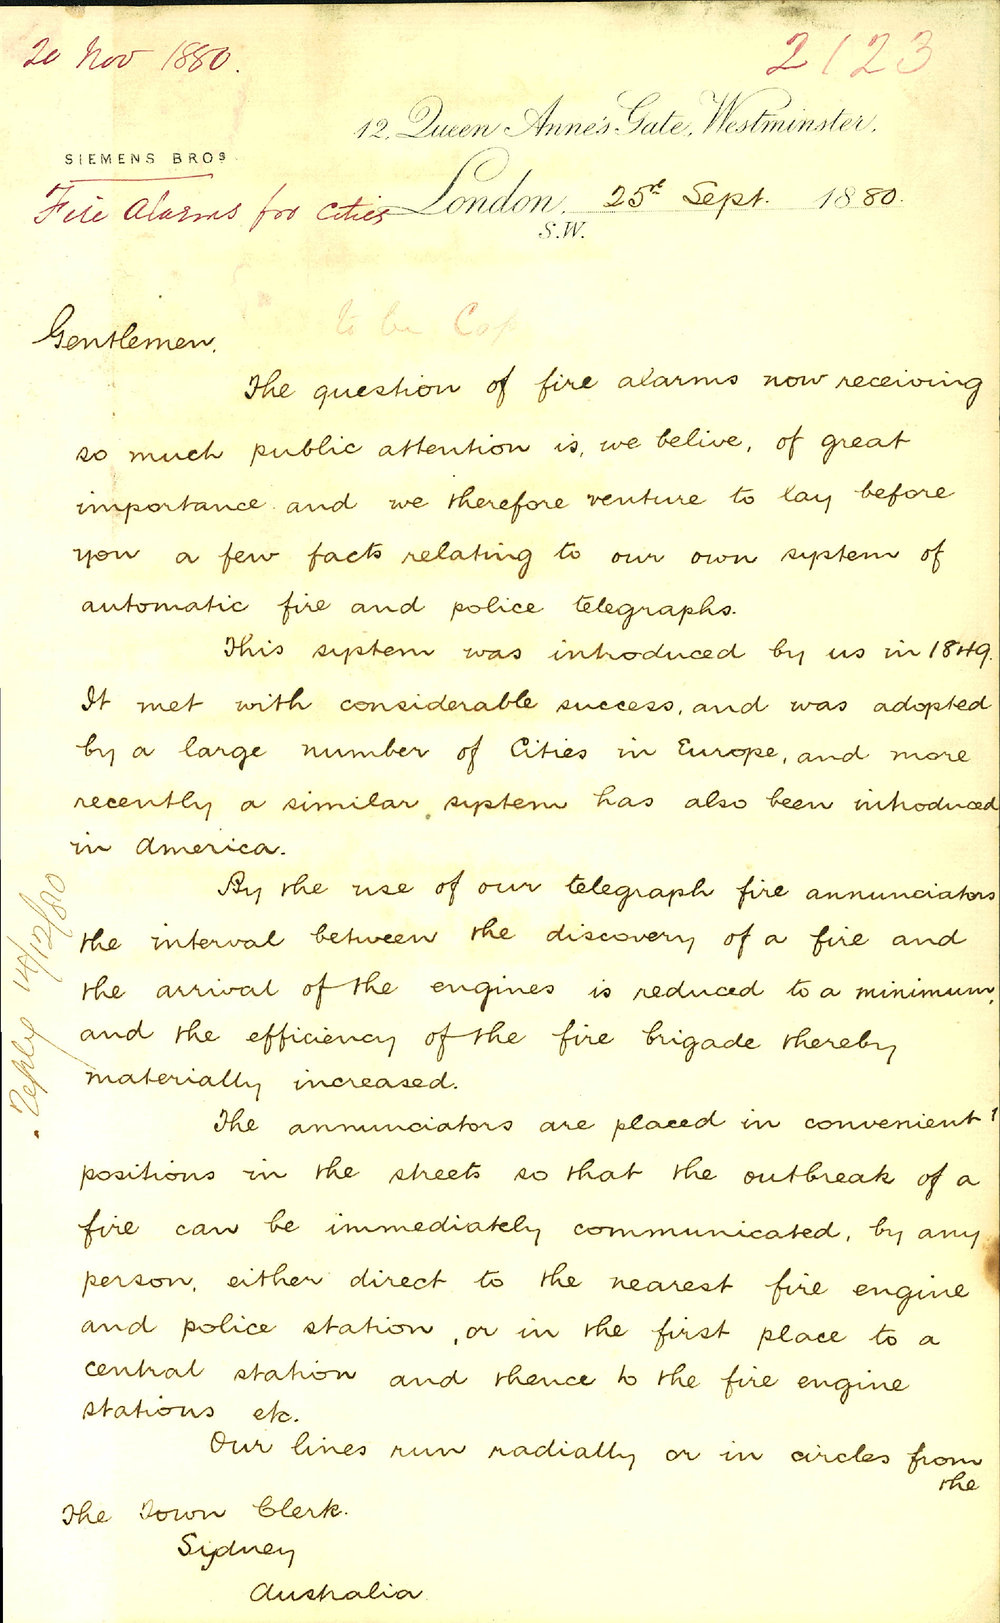 20 Nov 1880.
2123
12, Queen Anne's Gate, Westminster,
SIEMENS BROS
Fire Alarms for Cities
London, 25t Sept. 1880.
S.W.
to be
Gentlemen,
The question of fire alarms now receiving
so much public attention is, we belive, of great
importance and we therefore venture to lay before
you a few facts relating to our own system of
automatic fire and police telegraphs.
This system was introduced by us in 1849.
It met with considerable success, and was adopted
by a large number of Cities in Europe, and more
recently a similar system has also been introduced
in America.
By the use of our telegraph fire annunciators
the interval between the discovery of a fire and
the arrival of the engines is reduced to a minimum,
and the efficiency of the fire brigade thereby
materially increased.
The annunciators are placed in convenient
positions in the streets so that the outbreak of a
fire can be immediately communicated, by any
person, either direct to the nearest fire engine
and police station, or in the first place to a
central station and thence to the fire engine
stations etc.
Our lines run radially or in circles from
the
The Town Clerk.
Sydney
Australia
Reply 14/12/80